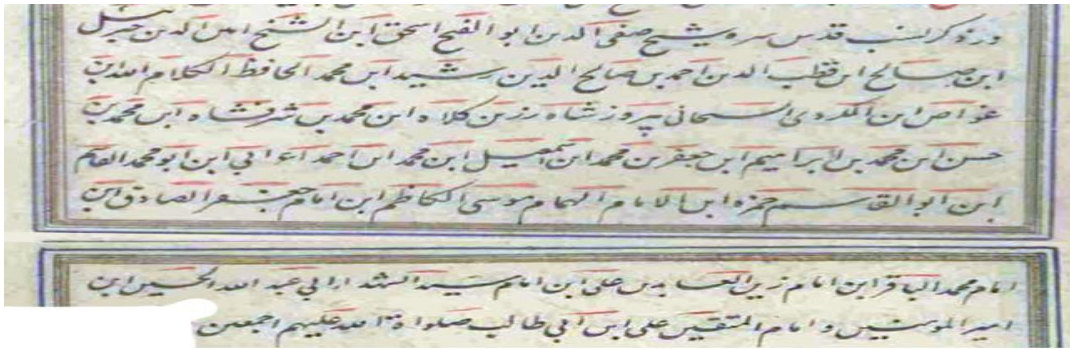 در ذکر نسب قدس سره شیخ صفی الدین ابو الفتح اسحق ابن الشیخ امین الدین جبرئیل
ابن صالح ابن قطب الدین احمد بن صالح الدین رشید ابن محمد الحافظ الکلام الله ابن
عواص ابن الکردی السنجانی پیروز شاه زرین کلاه ابن محمد بن شرفشاه ابن محمد بن
حسن ابن محمد بن ابراهیم ابن جعفر بن محمد ابن اسمعیل ابن محمد ابن احمد اعرابی ابن ابو محمد القاسم
ابن ابو القاسم حمزه ابن الامام الهمام موسی الکاظم ابن امام جعفر الصادق ابن
امام محمد الباقر ابن امام زین العابدین علی ابن امام سید الشهدا ابی عبد الله الحسین ابن
امیر المومنین و امام المتقین علی ابن ابی طالب صلواة الله علیهم اجمعین